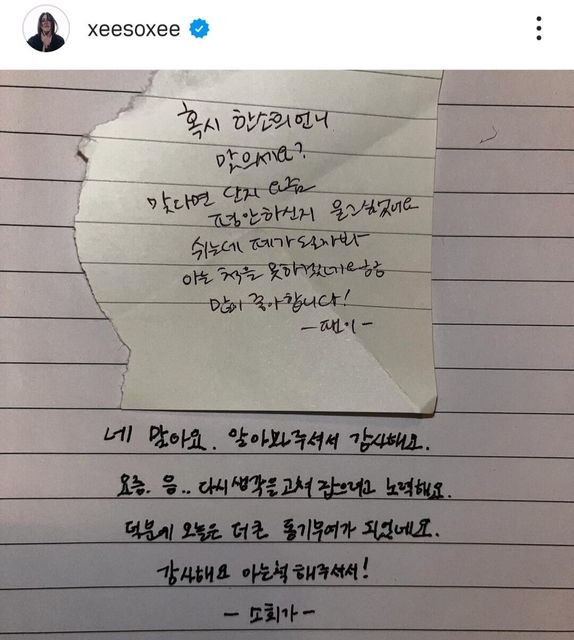 xeesoxee
혹시 한소희언니
맞으세요?
맞다면 단지 요즘
평안하신지 묻고싶었어요
쉬는데 폐가 되자봐
아는 척을 못하겠네요ㅎㅎ
많이 좋아합니다!
-팬이-
네 맞아요. 알아봐주셔서 감사해요.
요즘. 음.. 다시 생각을 고쳐 잡으려고 노력해요.
덕분에 오늘은 더 큰 동기부여가 되었네요.
감사해요 아는척 해주셔서!
- 소희가 -